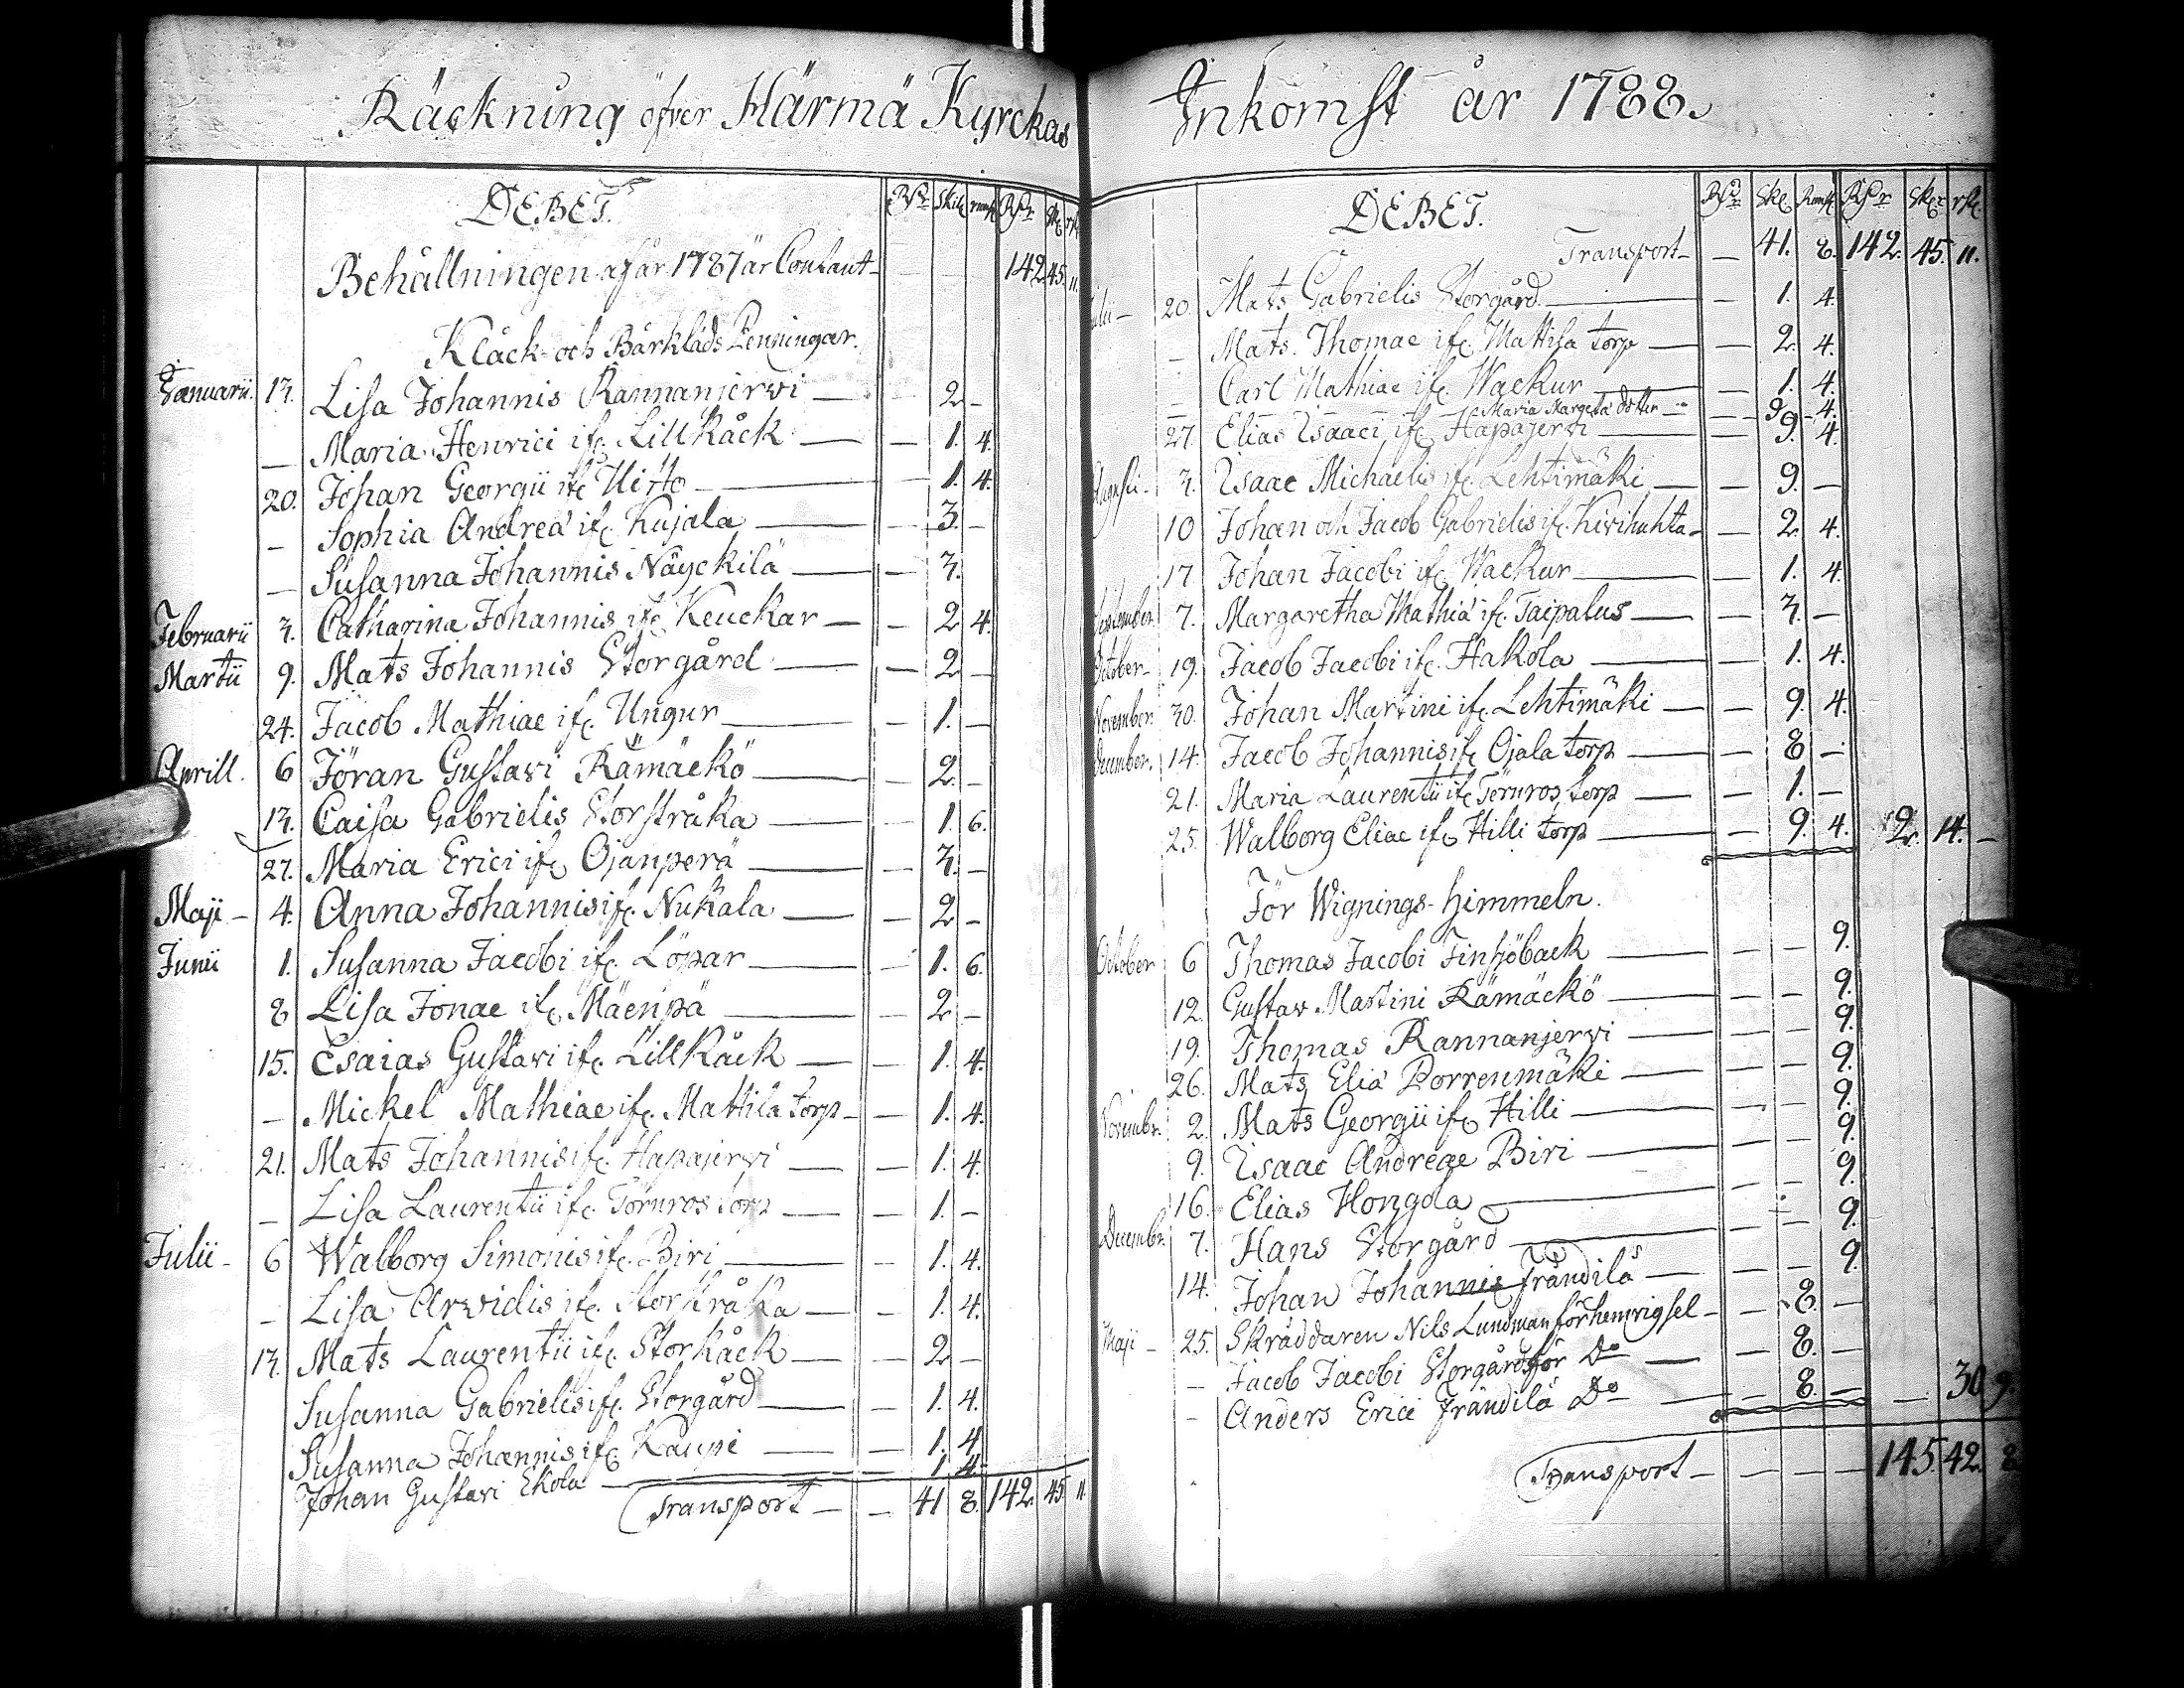 Räckning öfver Härmä Kyrckas
DEBET. Rdr Skil. runst. Rdr Sk. rst.
Behållningen af år 1787 är Contant - 142. 45. 11.
Klåck- och Bårklåds Penningar.
Januarii. 13. Lisa Johannis Rannanjerwi — 2. -
— Maria Henrici if. Lillkåck — — 1. 4.
20. Johan Georgii if. Uitto — — 1. 4.
— Sophia Andreä if. Kujala — — 3. -
— Susanna Johannis Näyckilä — — 3.
Februarii 3. Catharina Johannis if. Keuckar — — 2 4.
Martii 9. Mats Johannis Storgård — — 2 —
24. Jacob Mathiae if. Ungur — — 1. —
Aprill. 6 Jöran Gustavi Rämäckö — — 2. -
13. Caisa Gabrielis Storstråka — — 1. 6.
27. Maria Erici if. Ojanperä — — 3. -
Maji - 4. Anna Johannis if. Nukala — — 2 -
Junii 1. Susanna Jacobi if. Löpar — — 1. 6.
8 Lisa Jonae if. Mäenpä — — 2 -
15. Esaias Gustavi if. Lillkåck — — 1. 4.
— Mickel Mathiae if. Mattila torp - — 1. 4.
21. Mats Johannis if. Hapajerwi — — 1. 4.
— Lisa Laurentii if. Törnros torp — — 1. -
Julii - 6 Walborg Simonis if. Biri — — 1. 4.
- Lisa Arvidis if. Storstråka — — 1. 4.
13. Mats Laurentii if. Storkåck — — 2 -
Susanna Gabrielis if. Storgård — — 1. 4.
Susanna Johannis if. Kaupi — — 1. 4.
Johan Gustavi Ekola — 1 4.
Transport — — 41 8. 142. 45. 11.
Inkomst år 1788.
DEBET. Rdr Sk. Runst. Rdr Sk. rst.
Transport - — 41. 8. 142. 45. 11.
20. Mats Gabrielis Storgård — — 1. 4.
— Mats Thomae if. Mattila torp — — 2. 4.
— Carl Mathiae if. Wackur — — 1. 4.
— Maria Margeta dotter — — 9 - 4.
27. Elias Isaaci if. Hapajerwi — — 9. 4.
Augusti - 3. Isaac Michaelis if. Lehtimäki — — 9. —
10 Johan och Jacob Gabrielis if. Kivihuhta - — 2 4.
17 Johan Jacobi if. Wackur — — 1. 4.
September 7. Margaretha Mathiä if. Taipalus — — 3. —
October - 19. Jacob Jacobi if. Hakola — — 1. 4.
November. 30. Johan Martini if. Lehtimäki — — 9. 4.
December. 14. Jacob Johannis if. Ojala torp — — 8 -
21. Maria Laurentii if. Törnros torp — — 1. —
25. Walborg Eliae if. Hilli torp — — 9. 4. 2. 14. —
För Wignings-himmeln.
October 6 Thomas Jacobi Finsjöback — — — 9.
12. Gustav Martini Rämäckö — — — 9.
19. Thomas Rannanjerwi — — — 9.
26. Mats Eliä Porrenmäki — — — 9.
Novembr. 2. Mats Georgii if. Hilli — — — 9.
9. Isaac Andreae Biri — — — 9.
16. Elias Hongola — — — 9.
Decembr. 7. Hans Storgård — — — 9.
14. Johan Johannis Frändilä — — — 9.
Maji - 25. Skräddaren Nils Lundman för hemvigsel - — 8. —
— Jacob Jacobi Storgård för Do — — 8. —
- Anders Erici Frändilä Do — — 8. — — 30 9.
Transport — — — — — 145. 42. 8